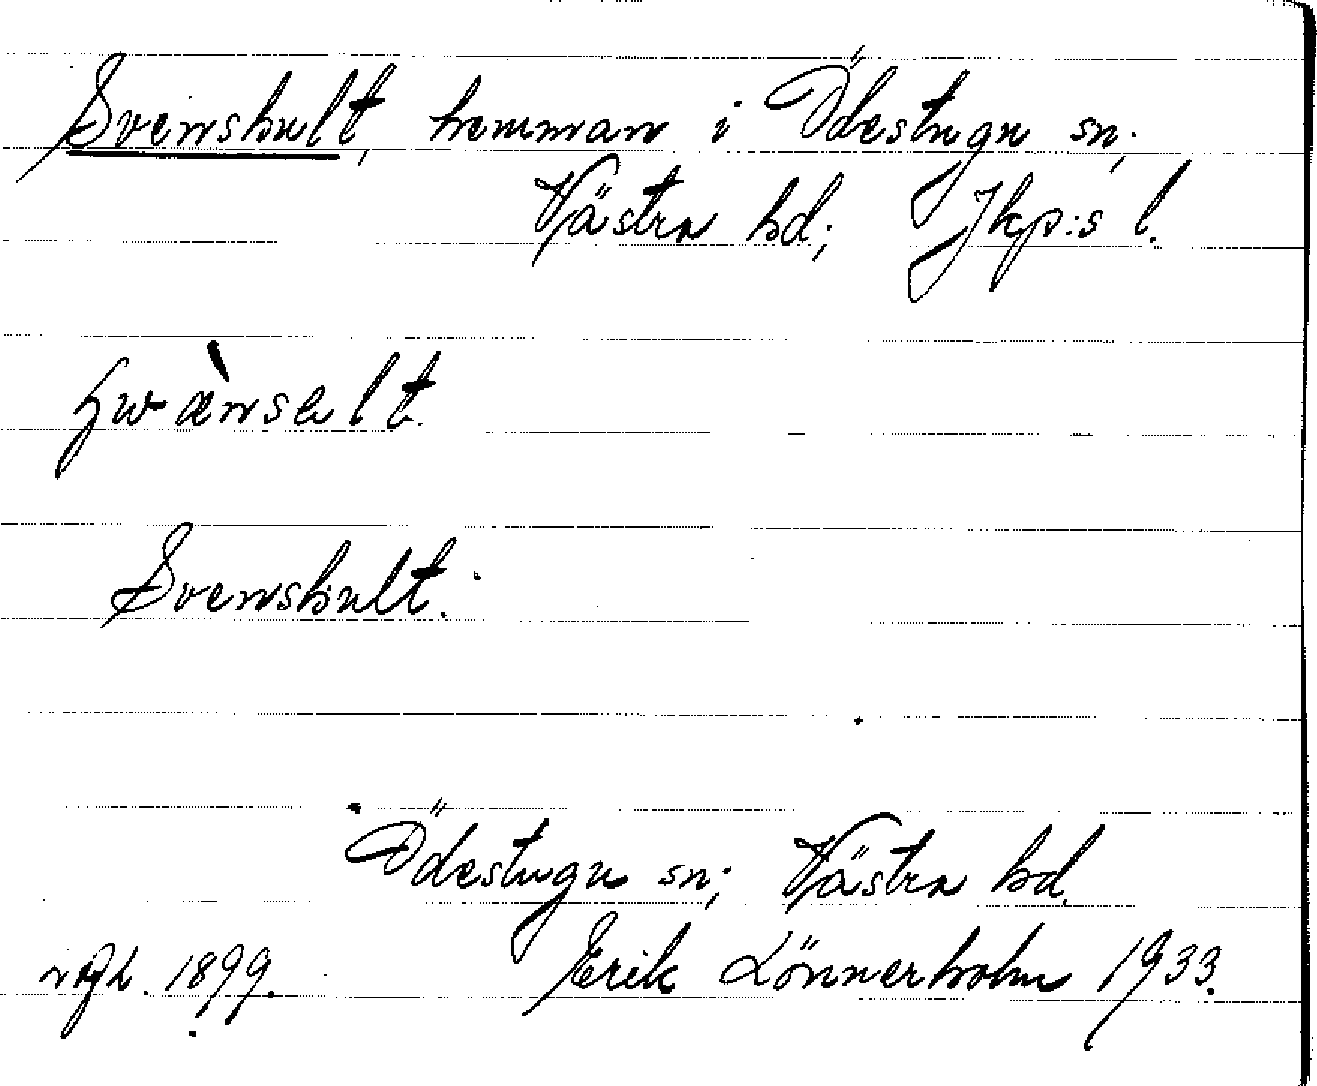 Svenshult, hemman i Ödestugu sn;
Västra hd; Jkp:s l.
Svenshult.
Ödestugu sn; Västra hd.
1899. Erik Lönnerholm 1933.